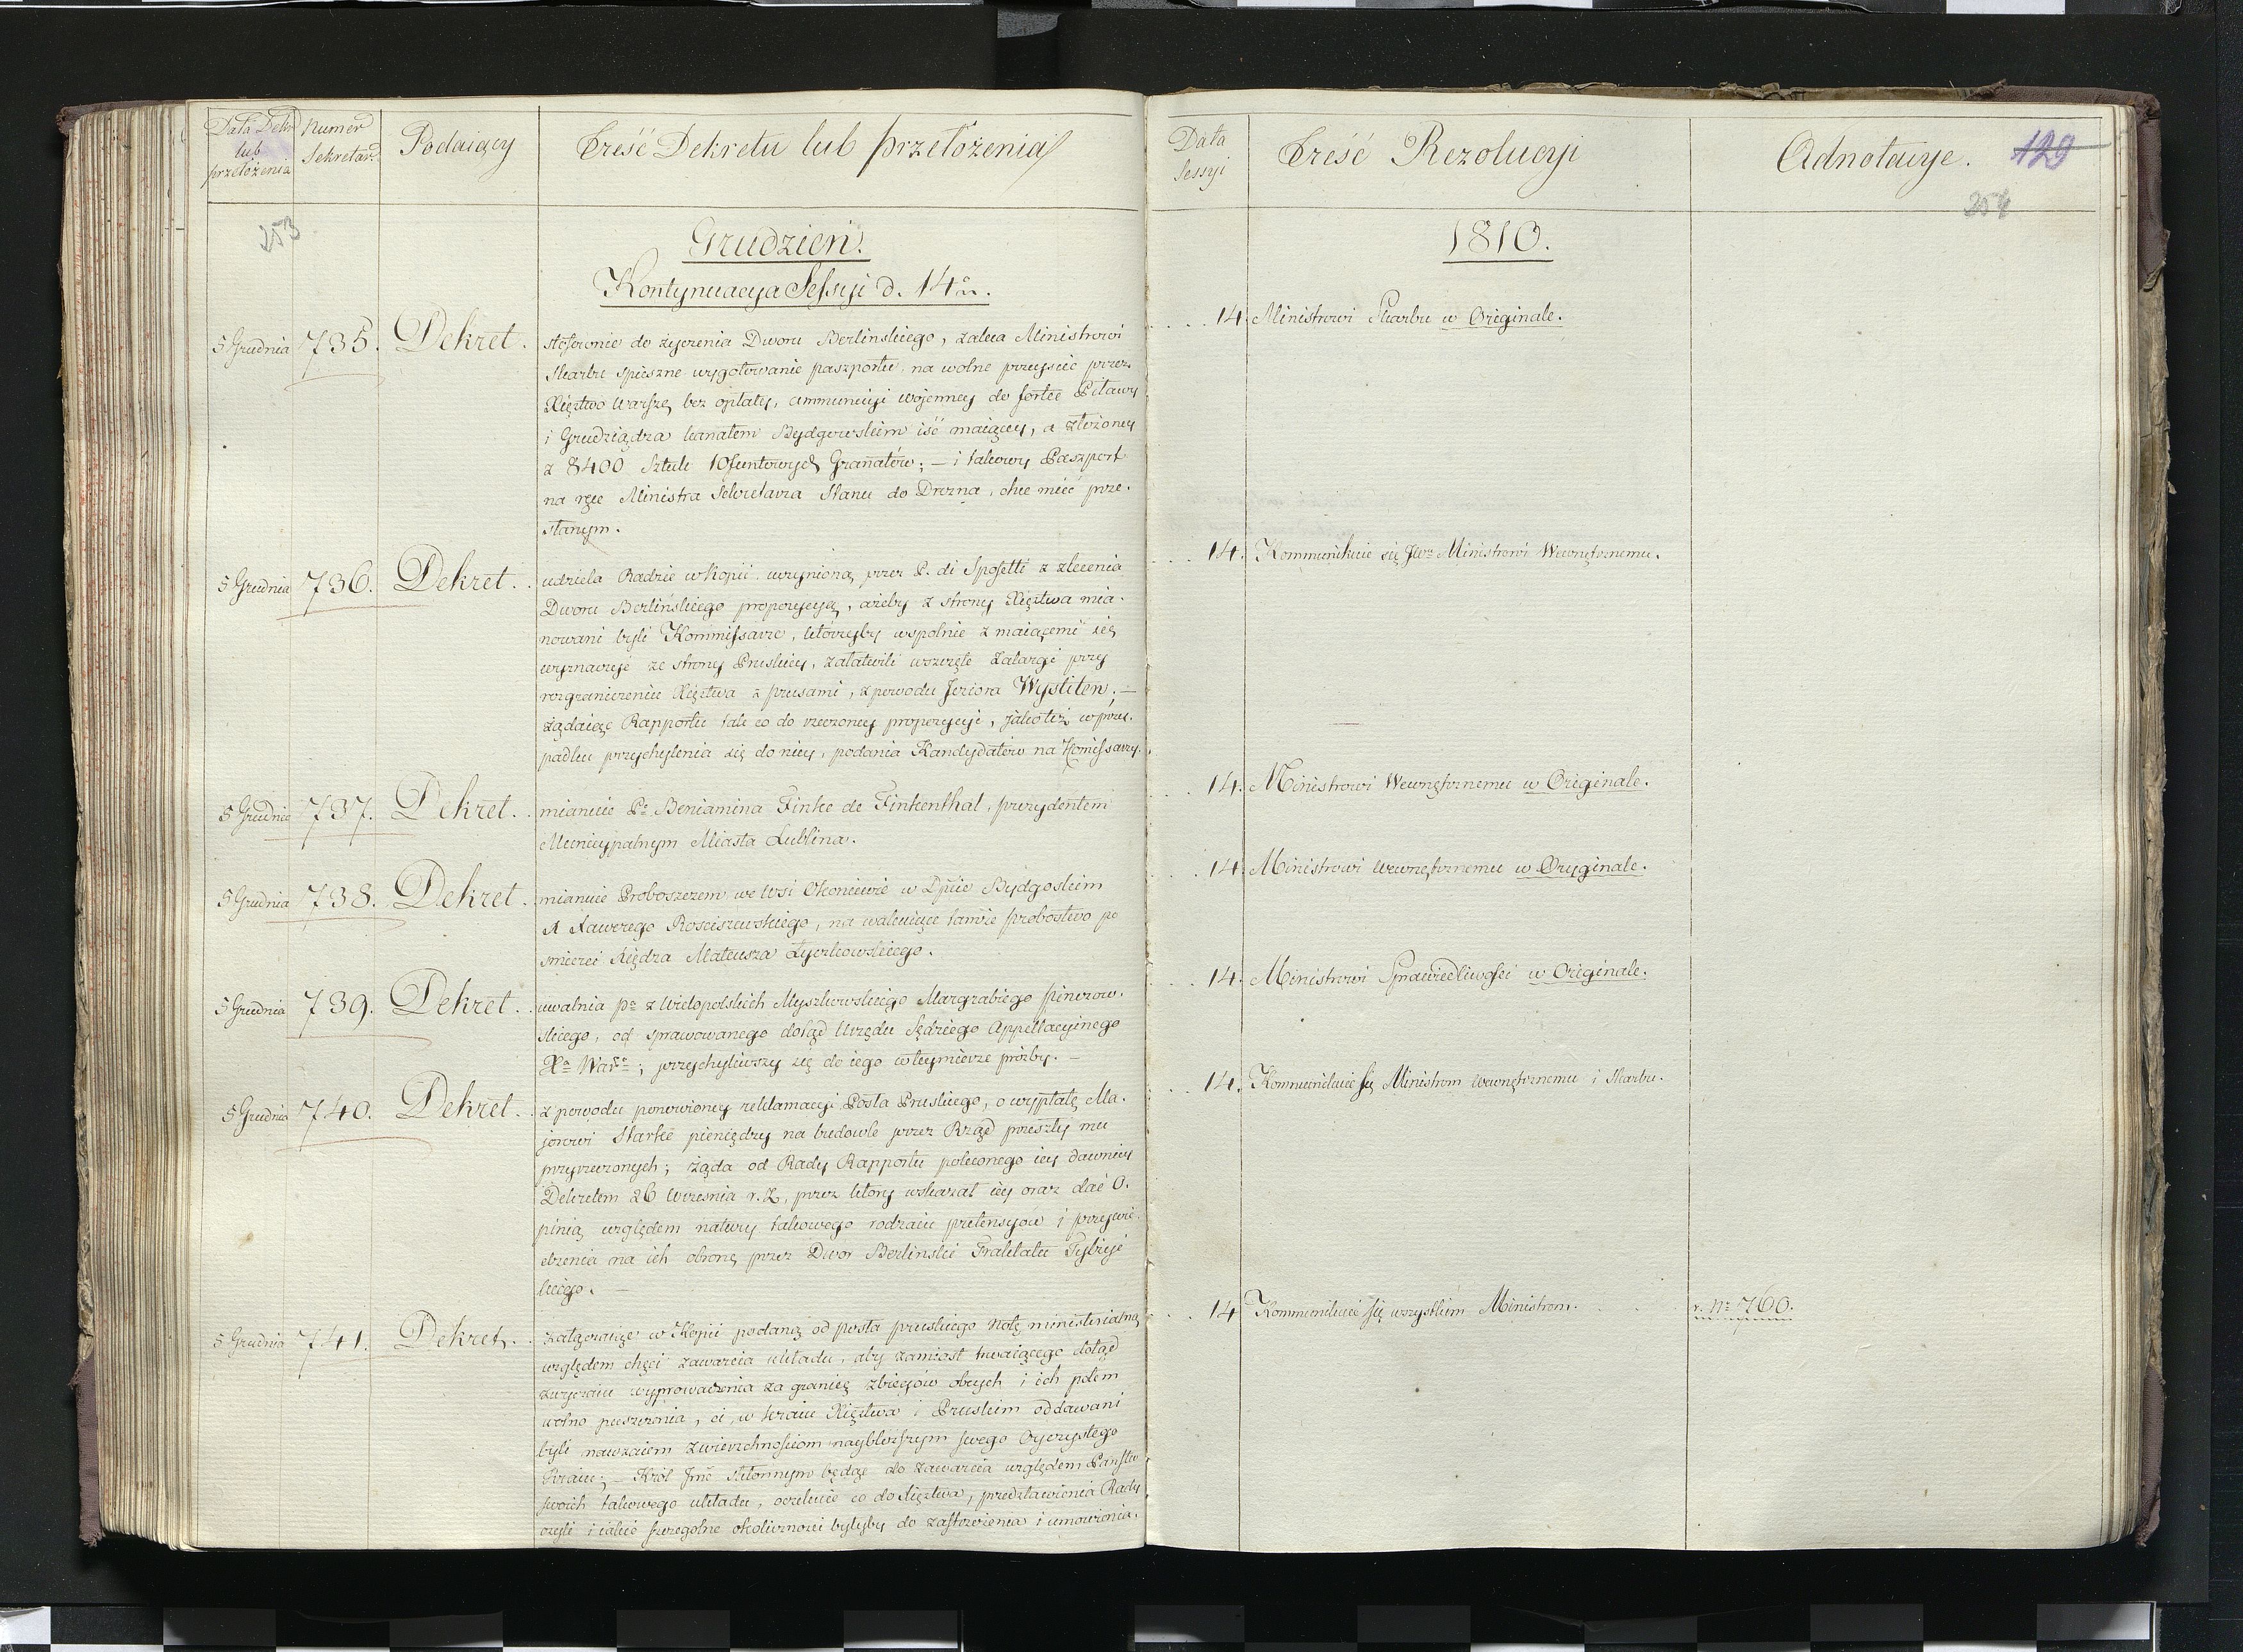 Data Dekr
lub
przełożenia
Numer
Sekretar.
Podaiący
Treść Dekretu lub przełożenia
253
Grudzień.
Kontynuacya Sessyi d. 14
5 Grudnia 735. Dekret.
stosownie do życzenia Dworu Berlinskiego, zaleca Ministrowi
Skarbu spieszne wygotowanie paszportu, na wolne przeyscie przez
Xięztwo Warszę, bez opłaty, ammunicyi wojenney do fortec Pilawy
i Grudziądza kanałem Bydgowskim iść maiącey, a złożoney
z 8400 Sztuk 10funtowych Granatów; – i takowy Paszport
na ręce Ministra Sekretarza Stanu do Drezna, chce mieć prze-
słanym.
5 Grudnia 736. Dekret.
udziela Radzie w Kopii, uczynioną przez P. di Sposetti z zlecenia
Dworu Berlińskiego propozycyą, ażeby z strony Xięztwa mia-
nowani byli Kommissarze, którzyby wspolnie z maiącemi się
wyznaczyć ze strony Pruskiey, załatwili wszczęte Zatargi przy
rozgraniczeniu Xięztwa z prusami, z powodu Jeziora Wystiten. –
żądaiąc Rapportu tak co do rzeczoney propozycyi, jako też w przy-
padku przychylenia się do niey, podania Kandydatów na Komissarzy.
5 Grudnia 737. Dekret.
mianuie Pa Beniamina Finke de Finkenthal, prezydentem
Municypalnym Miasta Lublina.
5 Grudnia 738. Dekret.
mianuie Proboszczem we Wsi Okoniewie w Dpcie Bydgoskim
X Xawerego Rosciszewskiego, na wakuiące tamże probostwo po
smierci Xiędza Mateusza Łyczkowskiego.
5 Grudnia 739. Dekret.
uwalnia pa z Wielopolskich Myszkowskiego Margrabiego pinczow-
skiego, od sprawowanego dotąd Urzędu Sędziego Appellacyinego
Xa Warso; przychyliwszy się do iego w teymierze prozby. –
5 Grudnia 740. Dekret.
z powodu ponowioney reklamacyi Posła Pruskiego, o wypłatę Ma-
jorowi Starke pieniędzy na budowle przez Rząd przeszły mu
przyrzeczonych; żąda od Rady Rapportu poleconego iey dawniey
Dekretem 26 Wrzesnia r.z, przez ktory wskazał iey oraz dać O-
pinią względem natury takowego rodzaiu pretensyów i przywie-
dzenia na ich obronę przez Dwor Berlinski Traktatu Tylżyc-
kiego. –
5 Grudnia 741. Dekret.
załączaiąc w Kopii podaną od posła pruskiego Notę ministerialną
względem chęci zawarcia układu, aby zamiast trwaiącego dotąd
zwyczaiu wyprowadzenia za granicę zbiegów obcych i ich potem
wolno puszczenia, ci, w kraiu Xięztwa i Pruskim oddawani
byli nawzaiem zwierzchnosciom naybliższym swego Oyczystego
Kraiu; – Król Jmć skłonnym będąc do zawarcia względem Państw
swoich takowego układu, oczekuie co do Xięztwa, przedstawienia Rady
czyli i iakie szczegolne okoliczności byłyby do zastrzeżenia i umowienia.
Data
Sessyi
Treść Rezolucyi
Adnotacye.
129
254
1810.
14 Ministrowi Skarbu w Originale.
14. Kommunikuie się JWu Ministrowi Wewnętrznemu.
14. Ministrowi Wewnętrznemu w Originale.
14. Ministrowi Wewnętrznemu w Oryginale.
14. Ministrowi Sprawiedliwości w Originale.
14. Kommunikuie się Ministrom Wewnętrznemu i Skarbu.
14 Kommunikuie się wszystkim Ministrom.
v. No 760.